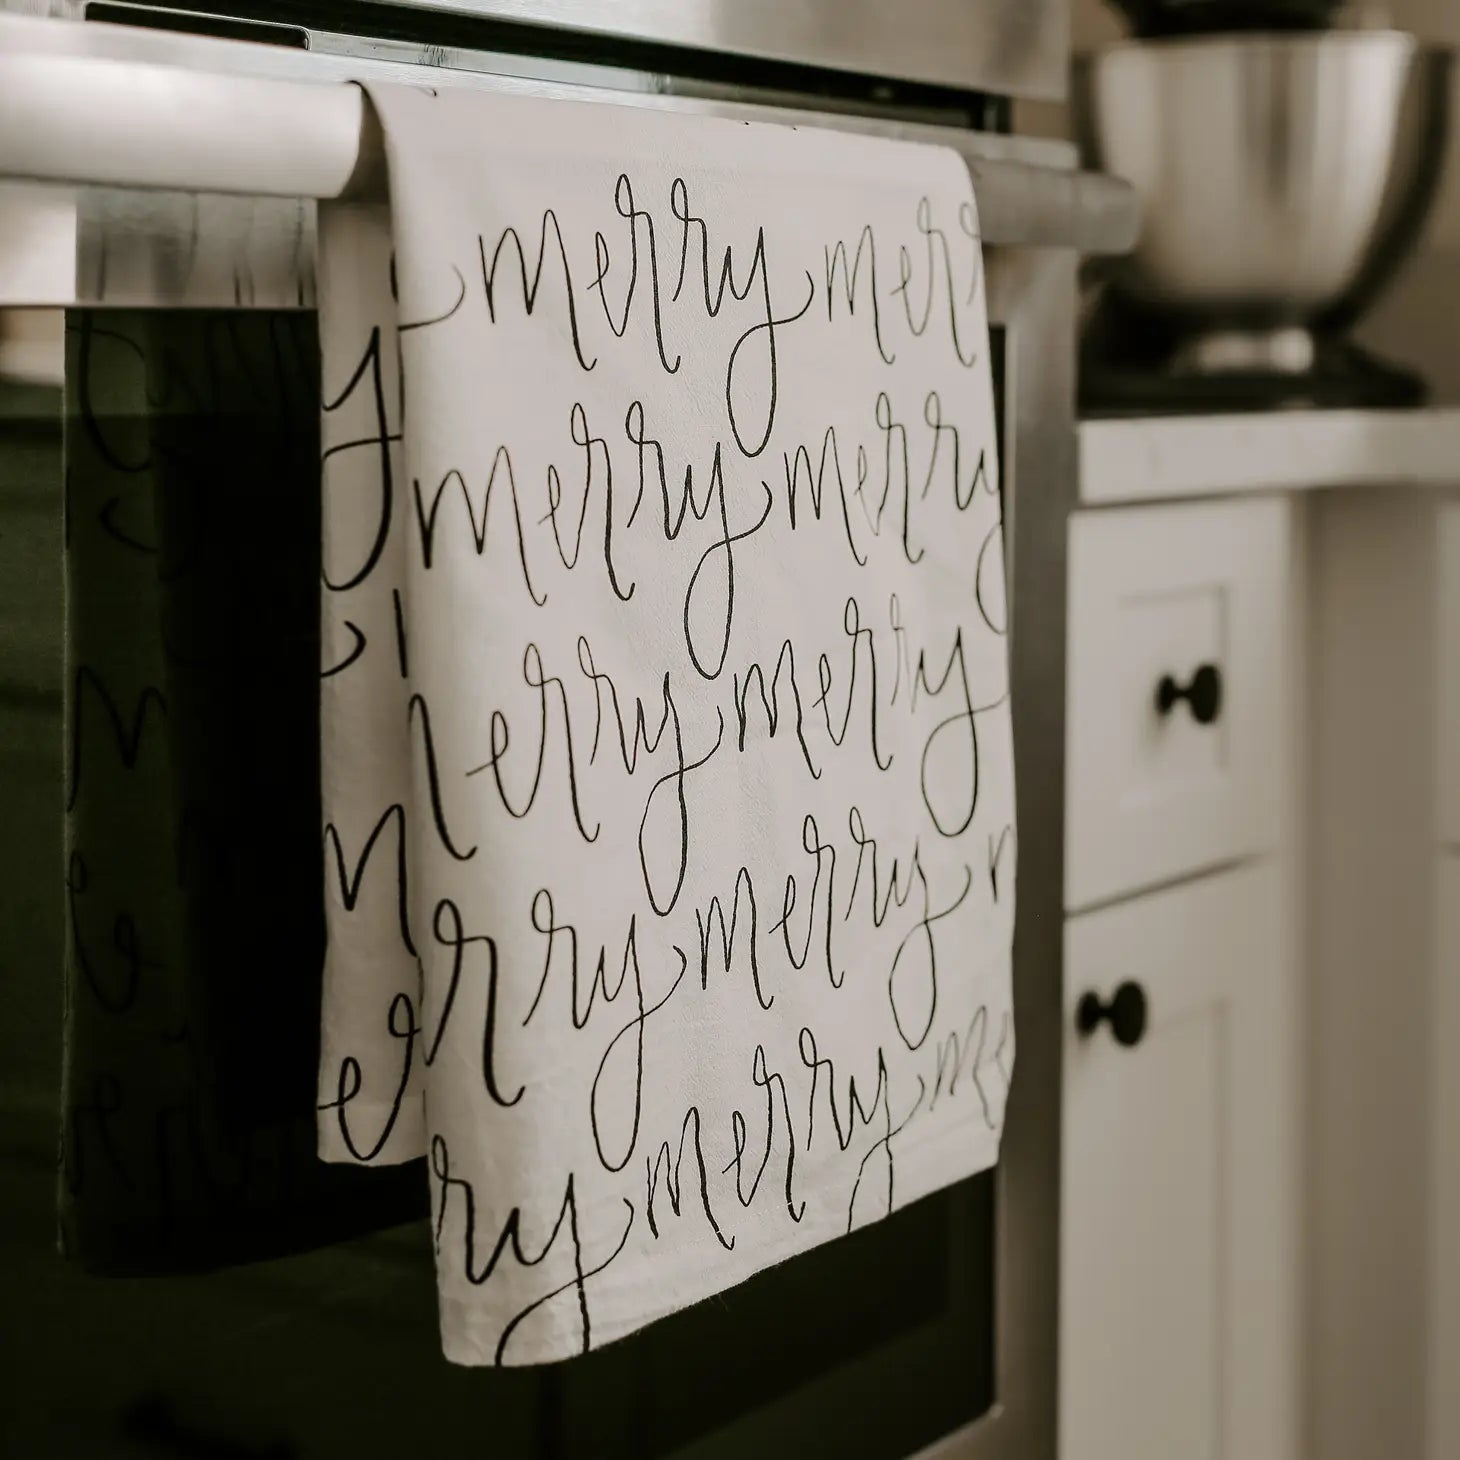 merry merr
merry merry
merry merry
rry merry
ry merry me